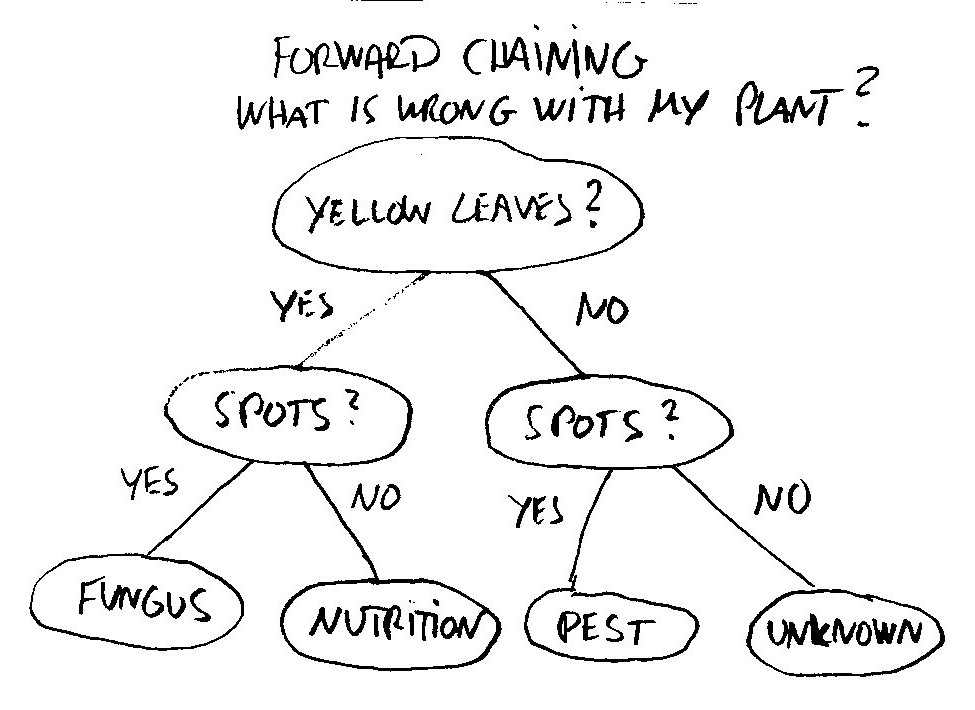 FORWARD CHAINING
WHAT IS WRONG WITH MY PLANT?
YELLOW LEAVES?
YES
NO
SPOTS?
SPOTS?
YES
NO
YES
NO
FUNGUS
NUTRITION
PEST
UNKNOWN